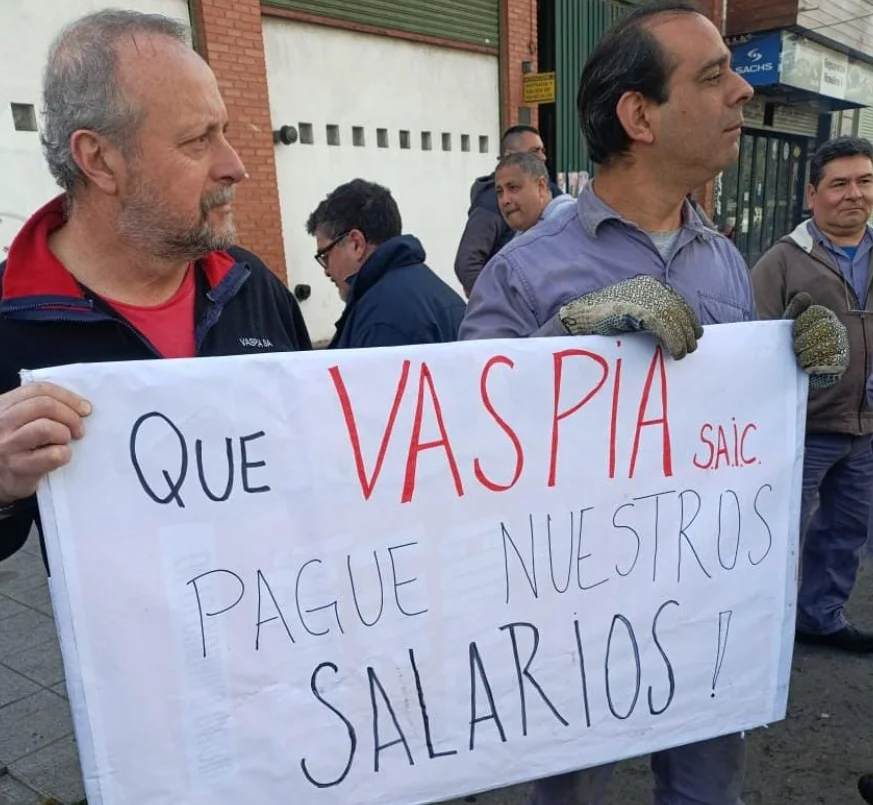 SACHS
VASPIA SA
QUE VASPIA S.A.I.C.
PAGUE NUESTROS
SALARIOS!